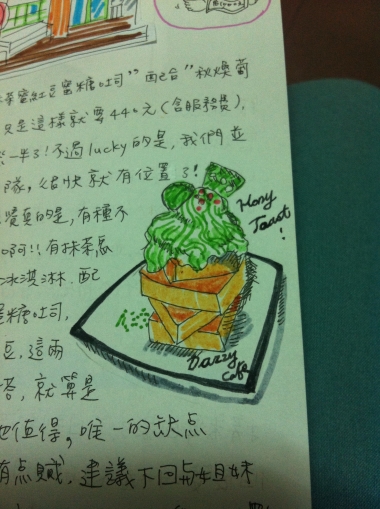 茶蜜紅豆蜜糖吐司" 配合"秋煥葡
只是這樣就要440元(含服務費),
一半了!不過lucky的是,我們並
隊,很快就有位置了!
讚賞的是,有種不
啊!!有抹茶
冰淇淋.配
糖吐司,
豆,這兩
答,就算是
也值得,唯一的缺点
有点膩,建議下回与姐妹
Hony
Toast
!
Dazzy
Cafe